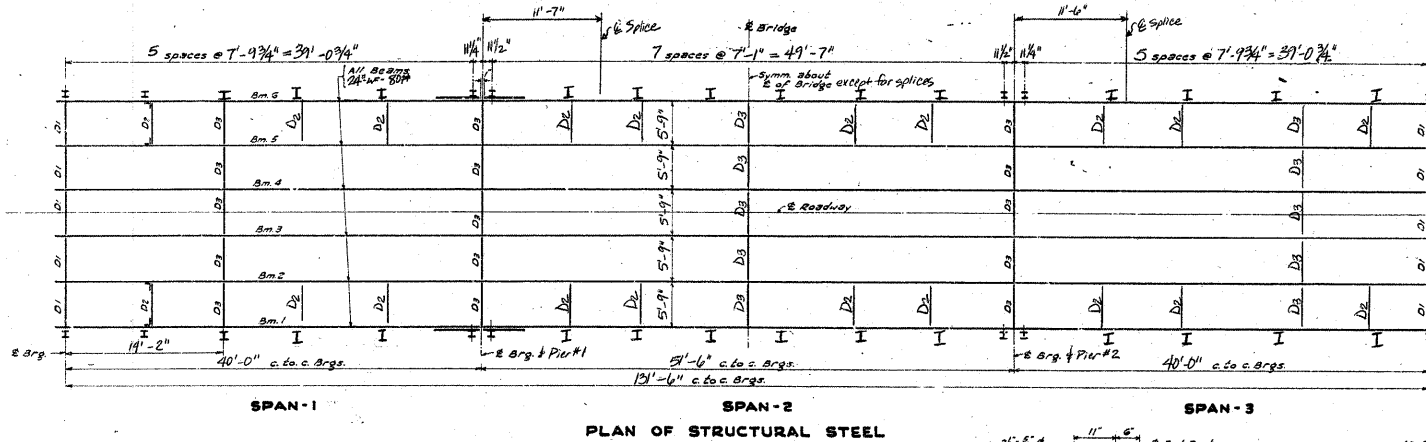 11'-7"
11'-6"
℄ Splice
℄ Bridge
℄ Splice
5 spaces @ 7'-9¾" = 39'-0¾"
11¼"
11½"
7 spaces @ 7'-1" = 49'-7"
11½"
11¼"
5 spaces @ 7'-9¾" = 39'-0¾"
All Beams
24" WF - 80#
Symm. about
℄ of Bridge except for splices
Bm. 6
D1 D2 D3 D2 D2 D3 D2 D2 5'-9" D3 D2 D2 D3 D2 D2 D3 D2 D1
Bm. 5
D1 D3 D3 5'-9" D3 D3 D3 D1
Bm. 4
D1 D3 D3 5'-9" D3 ℄ Roadway D3 D3 D1
Bm. 3
D1 D3 D3 5'-9" D3 D3 D3 D1
Bm. 2
D1 D2 D3 D2 D2 D3 D2 D2 5'-9" D3 D2 D2 D3 D2 D2 D3 D2 D1
Bm. 1
℄ Brg.
14'-2"
℄ Brg. & Pier #1
℄ Brg. & Pier #2
40'-0" c. to c. Brgs.
51'-6" c. to c. Brgs.
40'-0" c. to c. Brgs.
131'-6" c. to c. Brgs.
SPAN-1
SPAN-2
SPAN-3
PLAN OF STRUCTURAL STEEL
11" 6"